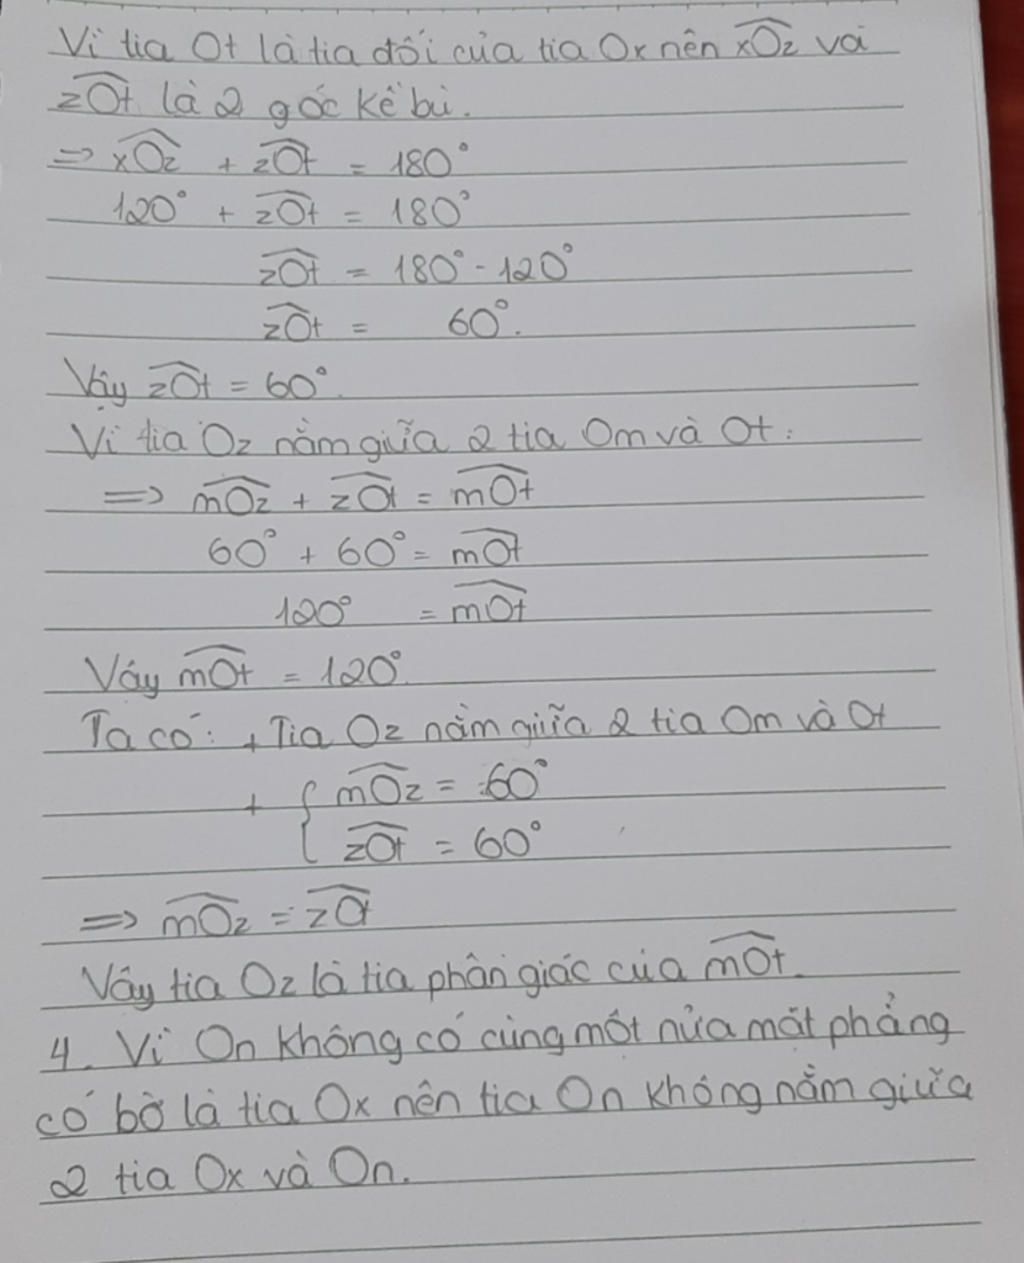 Vì tia Ot là tia đối của tia Ox nên xOz và
zOt là 2 góc kề bù.
=> xOz + zOt = 180°
120° + zOt = 180°
zOt = 180° - 120°
zOt = 60°.
Vậy zOt = 60°.
Vì tia Oz nằm giữa 2 tia Om và Ot:
=> mOz + zOt = mOt
60° + 60° = mOt
120° = mOt
Vậy mOt = 120°.
Ta có: + Tia Oz nằm giữa 2 tia Om và Ot
+ { mOz = 60°
zOt = 60°
=> mOz = zOt
Vậy tia Oz là tia phân giác của mOt.
4. Vì On không có cùng một nửa mặt phẳng
có bờ là tia Ox nên tia On không nằm giữa
2 tia Ox và On.